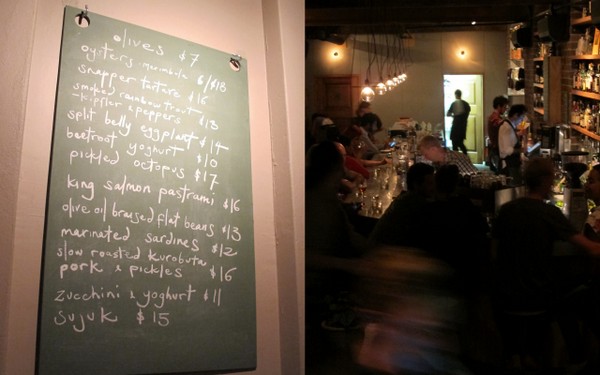 olives $7
oysters merimbula 6/$18
snapper tartare $16
smoked rainbow trout
kipfler + peppers $13
split belly eggplant $14
beetroot yoghurt $10
pickled octopus $17
king salmon pastrami $16
olive oil braised flat beans $13
marinated sardines $12
slow roasted Kurobuta
pork + pickles $16
zucchini + yoghurt $11
sujuk $15